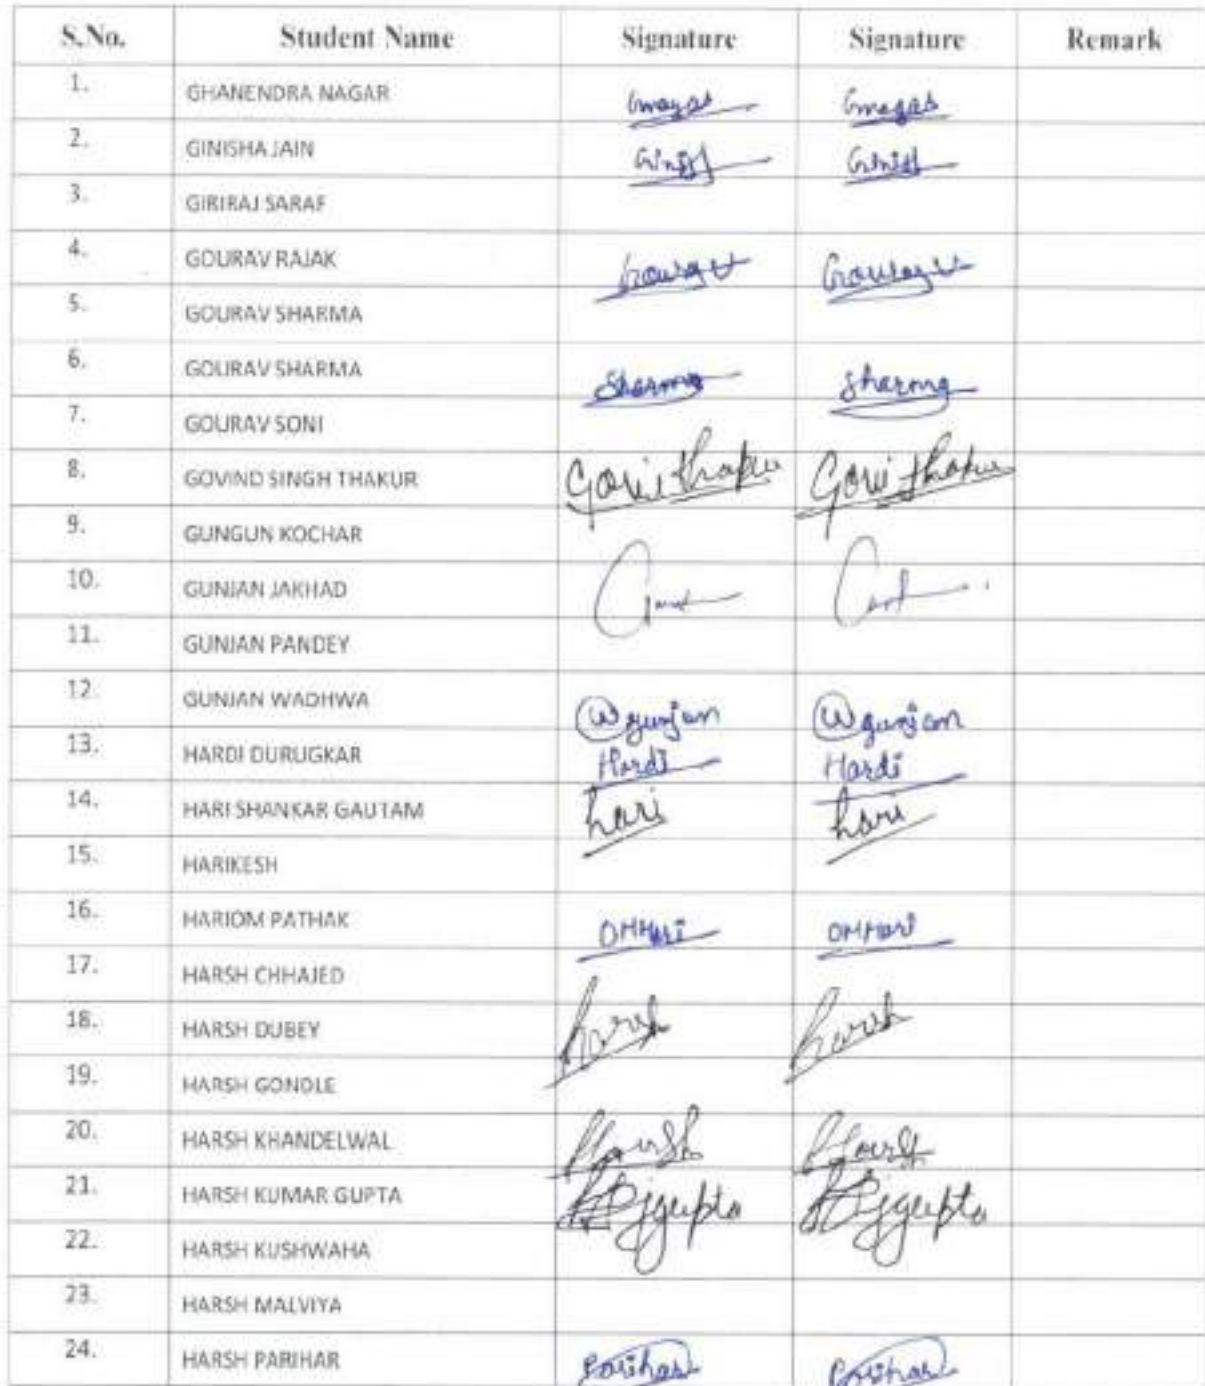 S.No. Student Name Signature Signature Remark
1. GHANENDRA NAGAR Gnagar Gnagar
2. GINISHA JAIN Ginish Ginish
3. GIRIRAJ SARAF
4. GOURAV RAJAK Gourav Gourav
5. GOURAV SHARMA
6. GOURAV SHARMA Sharma Sharma
7. GOURAV SONI
8. GOVIND SINGH THAKUR
9. GUNGUN KOCHAR
10. GUNJAN JAKHAD
11. GUNJAN PANDEY
12. GUNJAN WADHWA Wgunjan Wgunjan
13. HARDI DURUGKAR Hardi Hardi
14. HARI SHANKAR GAUTAM hari hari
15. HARIKESH
16. HARIOM PATHAK OMHari OMHari
17. HARSH CHHAJED
18. HARSH DUBEY harsh harsh
19. HARSH GONDLE
20. HARSH KHANDELWAL Harsh Harsh
21. HARSH KUMAR GUPTA
22. HARSH KUSHWAHA
23. HARSH MALVIYA
24. HARSH PARIHAR Parihar Parihar